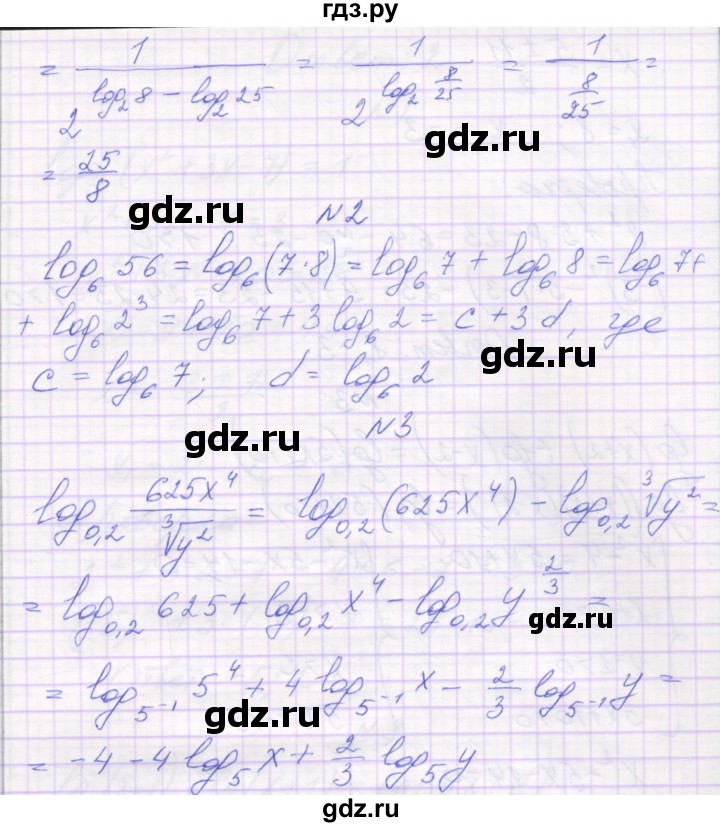 гдз.ру
= 1/(2^(log₂8 − log₂25)) = 1/(2^(log₂ 8/25)) = 1/(8/25) =
gdz.ru
= 25/8
gdz.ru
N2
log₆ 56 = log₆(7·8) = log₆ 7 + log₆ 8 = log₆ 7 +
+ log₆ 2³ = log₆ 7 + 3 log₆ 2 = c + 3d, где
gdz.ru
c = log₆ 7; d = log₆ 2
N3
gdz.ru
log₀,₂ 625x⁴/∛y² = log₀,₂(625x⁴) − log₀,₂ ∛y² =
gdz.ru
= log₀,₂ 625 + log₀,₂ x⁴ − log₀,₂ y^(2/3) =
gdz.ru
= log₅₋₁ 5⁴ + 4 log₅₋₁ x − 2/3 log₅₋₁ y =
gdz.ru
= −4 − 4 log₅ x + 2/3 log₅ y
gdz.ru